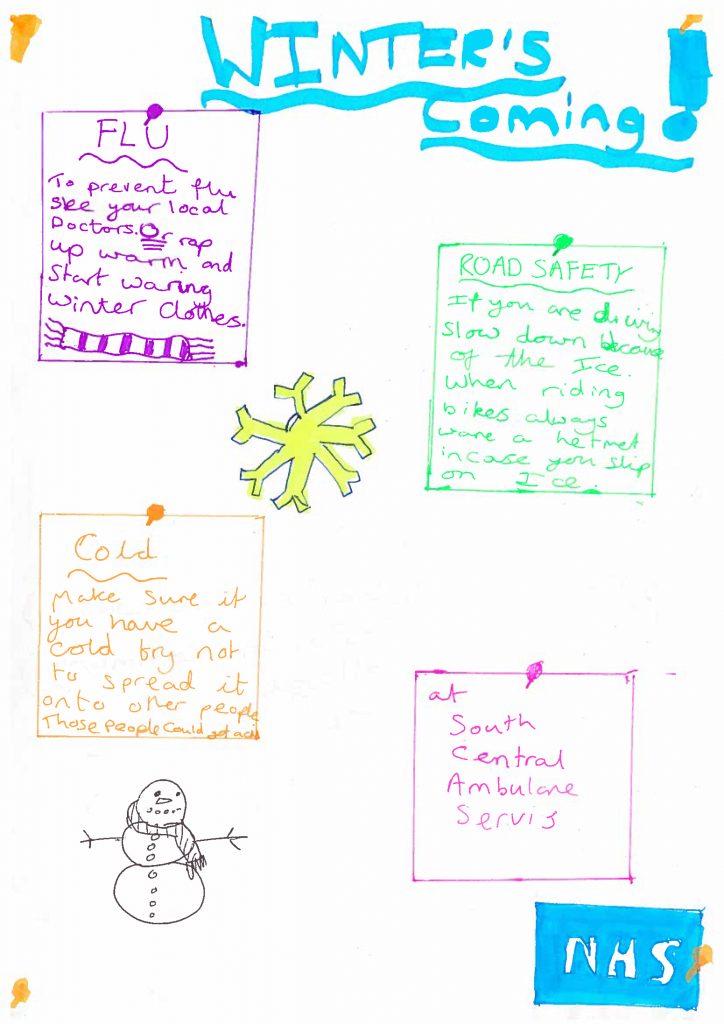 WINTER'S
Coming!
FLU
To prevent flu
see your local
Doctors. Or rap
up warm and
Start waring
winter clothes.
ROAD SAFETY
If you are driving
slow down because
of the Ice.
when riding
bikes always
ware a helmet
incase you slip
on Ice.
Cold
Make sure if
you have a
cold try not
to spread it
onto other people
Those People Could get a
at
South
Central
Ambulane
Servis
NHS